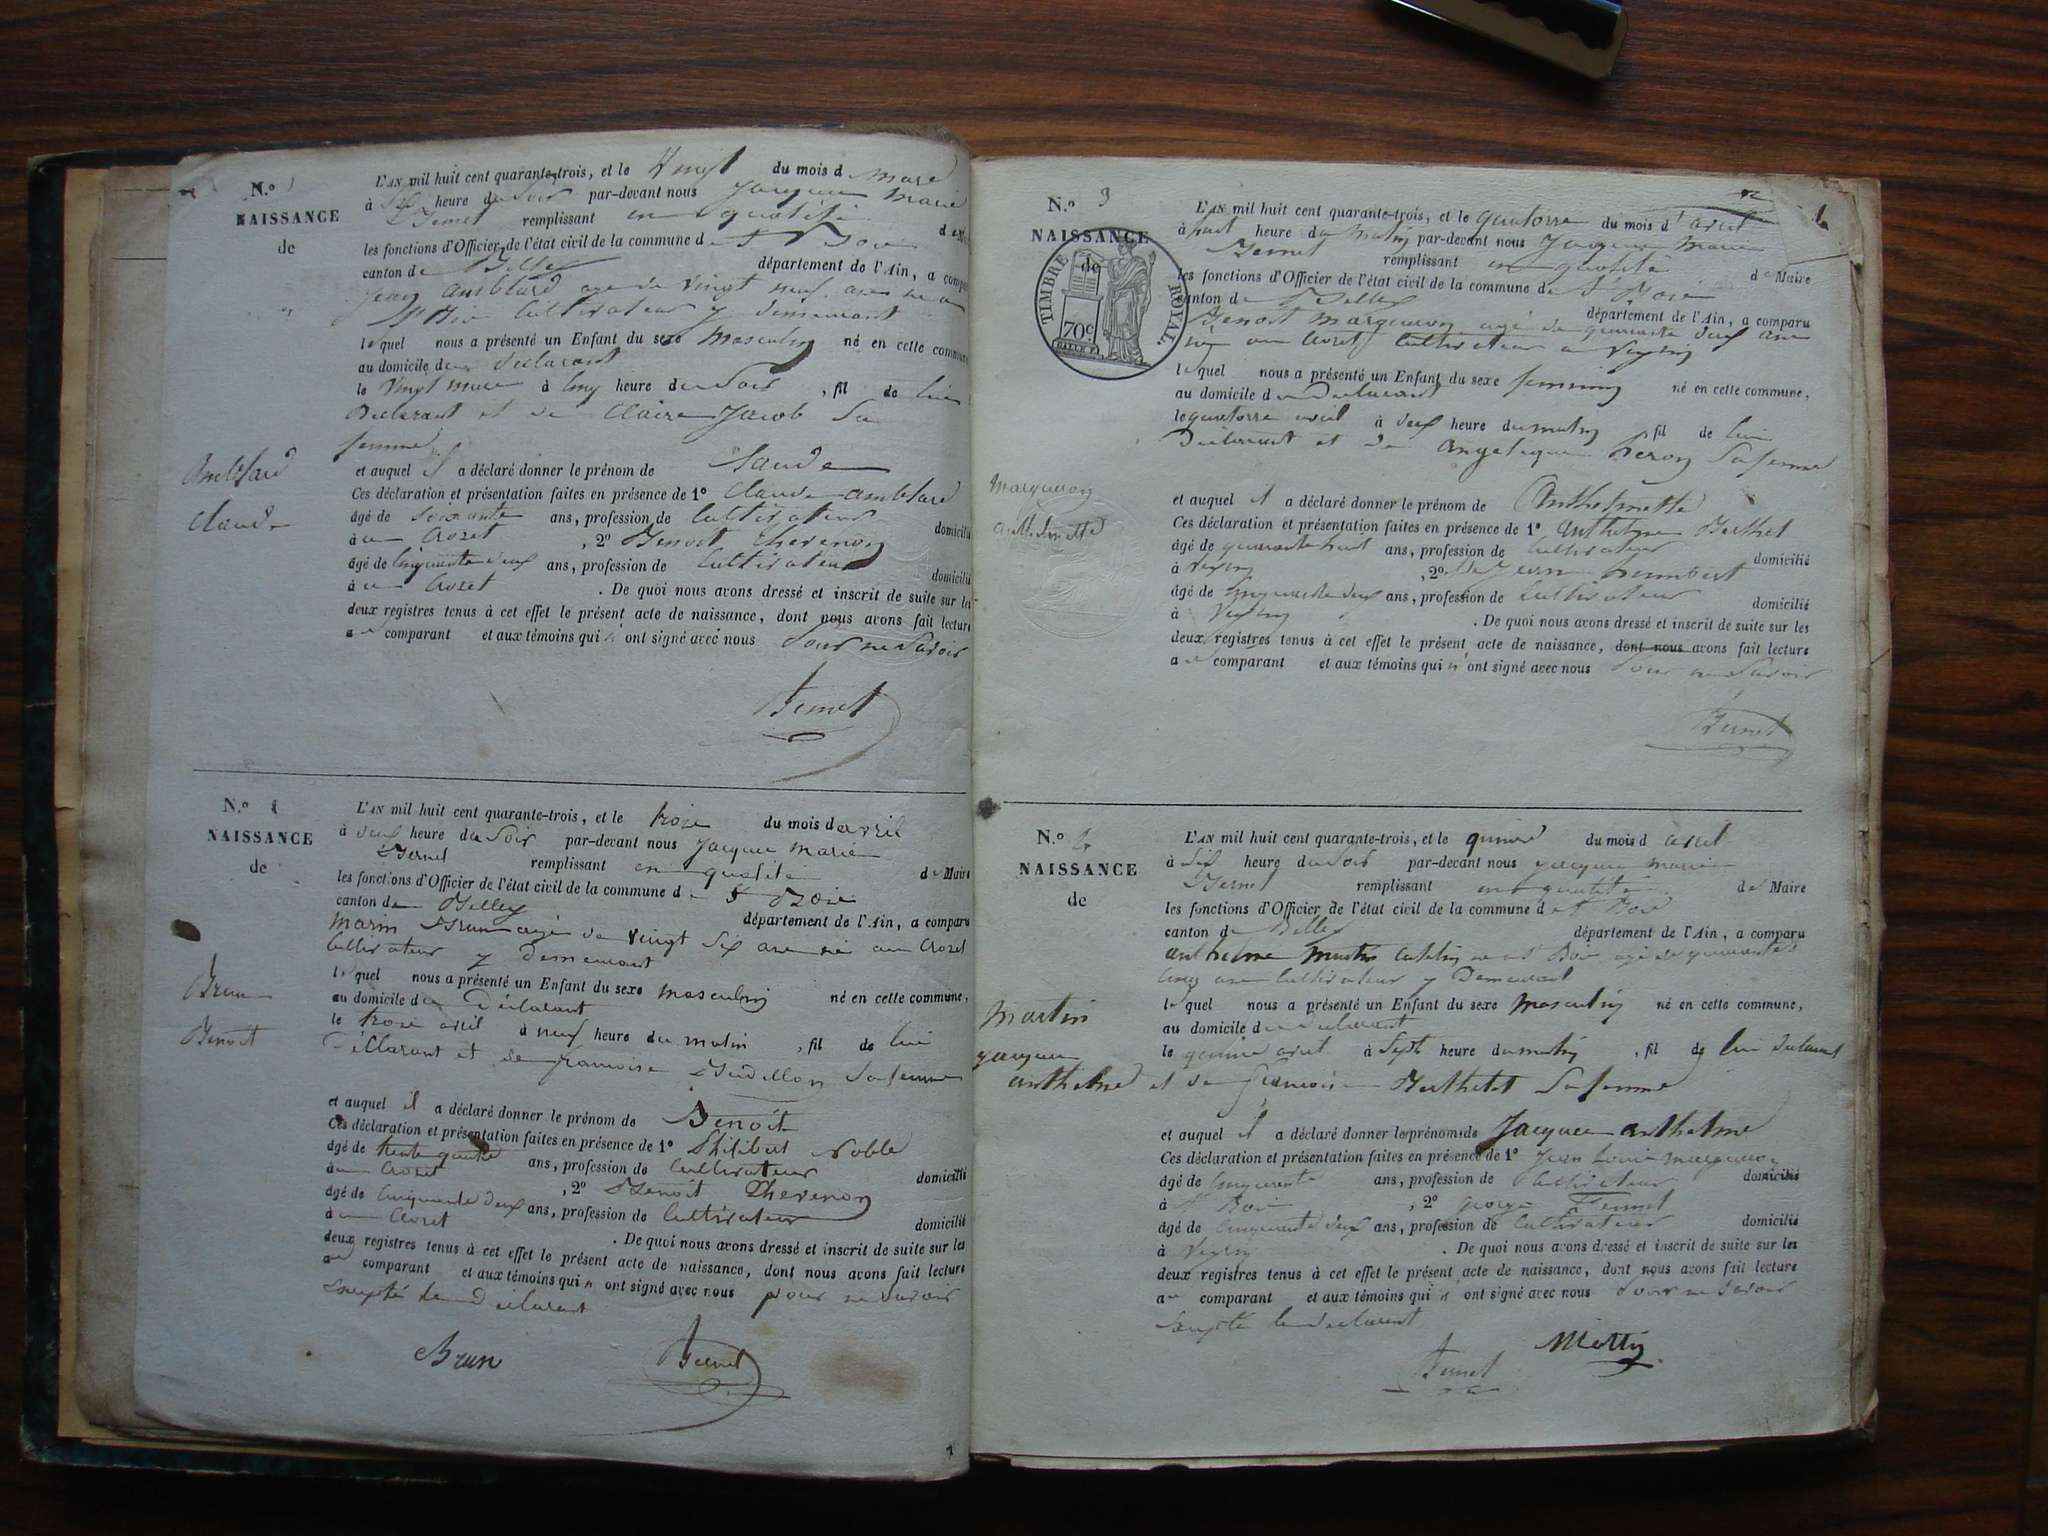 N.o 1
NAISSANCE
de
Amblard
Claude
L'AN mil huit cent quarante-trois, et le Vingt du mois d Mars
à Six heure du Soir par-devant nous Jacques Marie
Bernet remplissant en qualité de
les fonctions d'Officier de l'état civil de la commune de St Bois
canton de Belley département de l'Ain, a comparu
Jean Amblard agé de Vingt neuf ans né a
St Bois Cultivateur y demeurant
lequel nous a présenté un Enfant du sexe Masculin né en cette commune
au domicile du déclarant
le Vingt mars à Cinq heure du Soir , fil de lui
Déclarant et de Claire Jacob Sa
femme
et auquel il a déclaré donner le prénom de Claude
Ces déclaration et présentation faites en présence de 1º Claude amblard
âgé de soixante ans, profession de Cultivateur domicilié
à au Crozet , 2º Benoit thevenon
âgé de Cinquante deux ans, profession de Cultivateur domicilié
à au Crozet . De quoi nous avons dressé et inscrit de suite sur les
deux registres tenus à cet effet le présent acte de naissance, dont nous avons fait lecture
au comparant et aux témoins qui n'ont signé avec nous Pour ne Savoir
Bernet
N.o
NAISSANCE
de
Brun
Benoit
L'AN mil huit cent quarante-trois, et le trois du mois d avril
à deux heure du Soir par-devant nous Jacques Marie
Bernet remplissant en qualité de Maire
les fonctions d'Officier de l'état civil de la commune de St Bois
canton de Belley département de l'Ain, a comparu
Marin Brun agé de vingt Six ans né au Crozet
Cultivateur y Demeurant
lequel nous a présenté un Enfant du sexe masculin né en cette commune,
au domicile du Déclarant
le trois avril à neuf heure du matin , fil de lui
Déclarant et de françoise Sa femme
et auquel il a déclaré donner le prénom de Benoit
Ces déclaration et présentation faites en présence de 1º Philibert Noble
âgé de trente quatre ans, profession de Cultivateur domicilié
à au Crozet , 2º Benoit thevenon
âgé de Cinquante deux ans, profession de Cultivateur domicilié
à au Crozet . De quoi nous avons dressé et inscrit de suite sur les
deux registres tenus à cet effet le présent acte de naissance, dont nous avons fait lecture
au comparant et aux témoins qui n ont signé avec nous pour ne savoir
excepté le Déclarant
Brun Bernet
N.o 3
NAISSANCE
de
TIMBRE ROYAL.
70c.
Marqueron
anthelmette
L'AN mil huit cent quarante-trois, et le quatorze du mois d'avril
à huit heure du Matin par-devant nous Jacques Marie
Bernet remplissant en qualité de Maire
les fonctions d'Officier de l'état civil de la commune de St Bois
canton de Belley département de l'Ain, a comparu
Benoit Marqueron agé de quarante deux ans
né au Crozet Cultivateur a Veyrin
lequel nous a présenté un Enfant du sexe feminin né en cette commune,
au domicile du Déclarant
le quatorze avril à deux heure du matin fil de lui
Déclarant et de Angelique Peron Sa femme
et auquel il a déclaré donner le prénom de Anthelmette
Ces déclaration et présentation faites en présence de 1º Anthelme Berthet
âgé de quarante huit ans, profession de Cultivateur domicilié
à Veyrin , 2º Jean humbert
âgé de Cinquante deux ans, profession de Cultivateur domicilié
à Veyrin . De quoi nous avons dressé et inscrit de suite sur les
deux registres tenus à cet effet le présent acte de naissance, dont nous avons fait lecture
au comparant et aux témoins qui n'ont signé avec nous Pour ne Savoir
Bernet
N.o 4
NAISSANCE
de
Martin
Jacques
anthelme
L'AN mil huit cent quarante-trois, et le quinze du mois d avril
à Six heure du Soir par-devant nous Jacques Marie
Bernet remplissant en qualité de Maire
les fonctions d'Officier de l'état civil de la commune de St Bois
canton de Belley département de l'Ain, a comparu
anthelme Martin né a St Bois agé de quarante
Cinq ans Cultivateur y Demeurant
lequel nous a présenté un Enfant du sexe Masculin né en cette commune,
au domicile du déclarant
le quinze avril à Sept heure du matin , fil de lui déclarant
et de françoise Berthelet Sa femme
et auquel il a déclaré donner le prénom de Jacques anthelme
Ces déclaration et présentation faites en présence de 1º Jean Louis Marqueron
âgé de Cinquante ans, profession de Cultivateur domicilié
à St Bois , 2º George Bernet
âgé de Cinquante deux ans, profession de Cultivateur domicilié
à Veyrin . De quoi nous avons dressé et inscrit de suite sur les
deux registres tenus à cet effet le présent acte de naissance, dont nous avons fait lecture
au comparant et aux témoins qui n'ont signé avec nous Pour ne Savoir
Excepté le déclarant
Bernet Martin